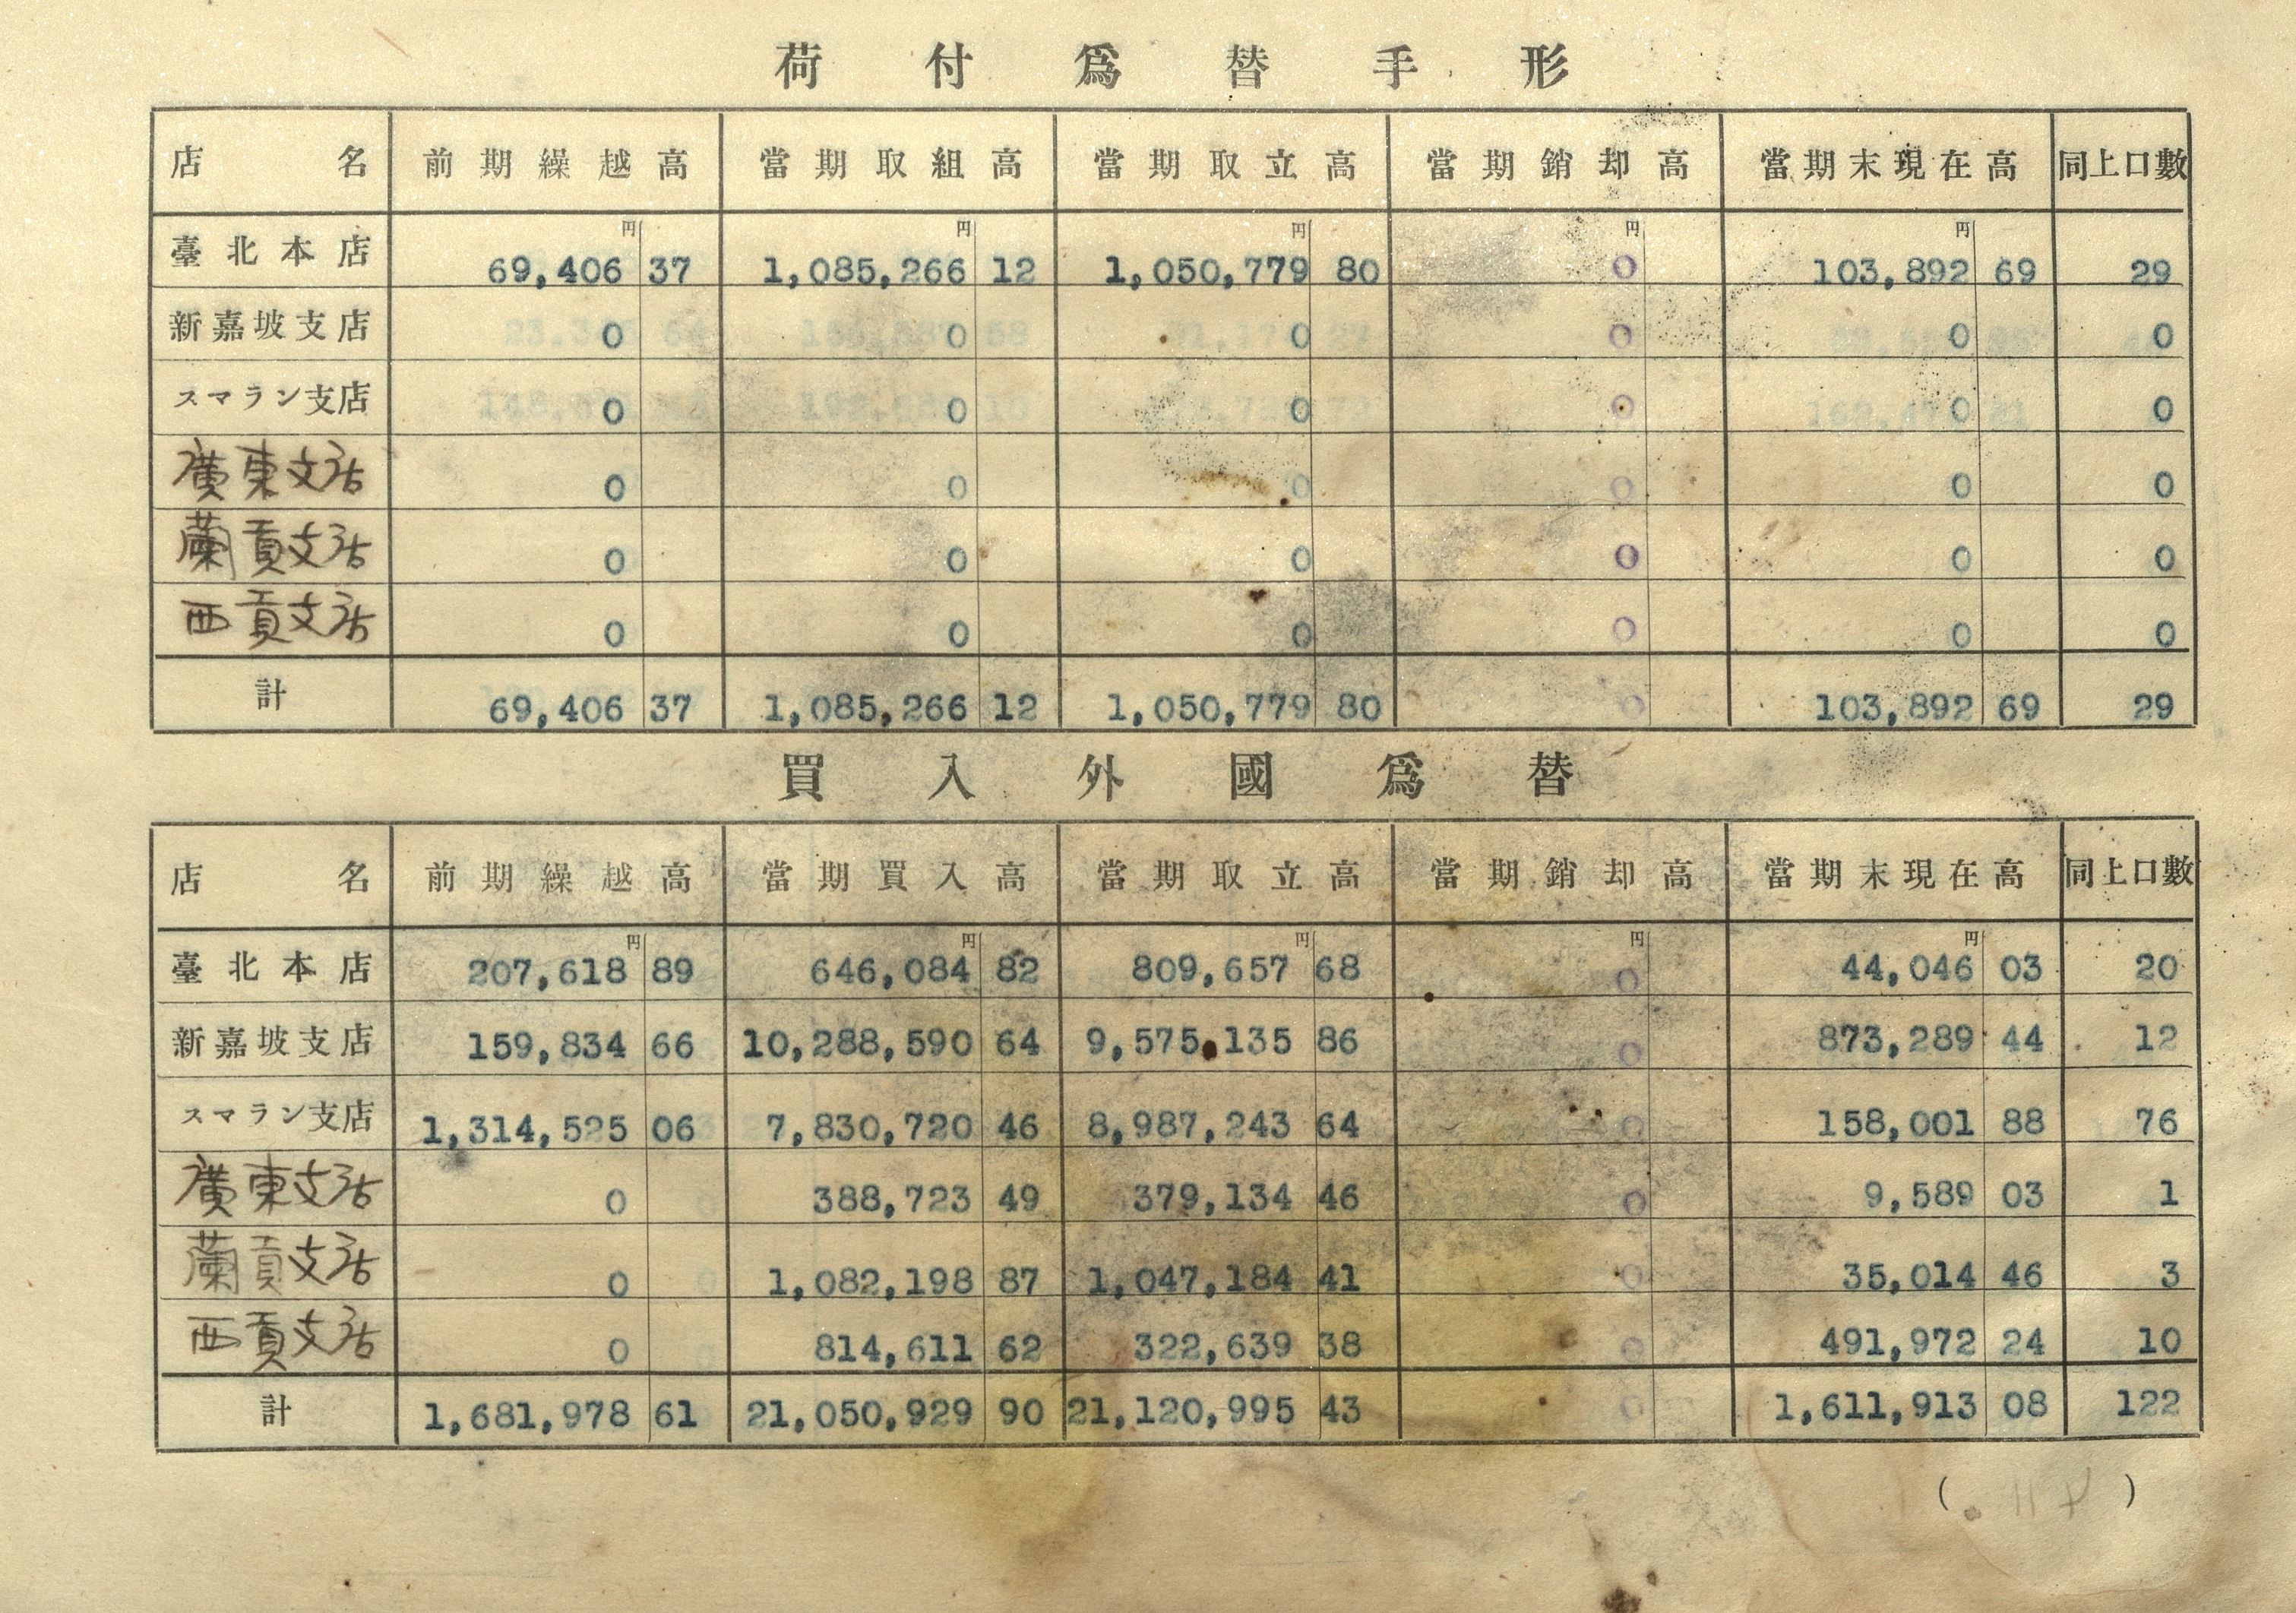 荷付爲替手形
店名 前期繰越高 當期取組高 當期取立高 當期銷却高 當期末現在高 同上口數
円 円 円 円 円
臺北本店 69,406 37 1,085,266 12 1,050,779 80 0 103,892 69 29
新嘉坡支店 0 0 0 0 0 0
スマラン支店 0 0 0 0 0 0
廣東支店 0 0 0 0 0 0
蘭貢支店 0 0 0 0 0 0
西貢支店 0 0 0 0 0 0
計 69,406 37 1,085,266 12 1,050,779 80 0 103,892 69 29
買入外國爲替
店名 前期繰越高 當期買入高 當期取立高 當期銷却高 當期末現在高 同上口數
円 円 円 円 円
臺北本店 207,618 89 646,084 82 809,657 68 0 44,046 03 20
新嘉坡支店 159,834 66 10,288,590 64 9,575,135 86 0 873,289 44 12
スマラン支店 1,314,525 06 7,830,720 46 8,987,243 64 0 158,001 88 76
廣東支店 0 388,723 49 379,134 46 0 9,589 03 1
蘭貢支店 0 1,082,198 87 1,047,184 41 0 35,014 46 3
西貢支店 0 814,611 62 322,639 38 0 491,972 24 10
計 1,681,978 61 21,050,929 90 21,120,995 43 0 1,611,913 08 122